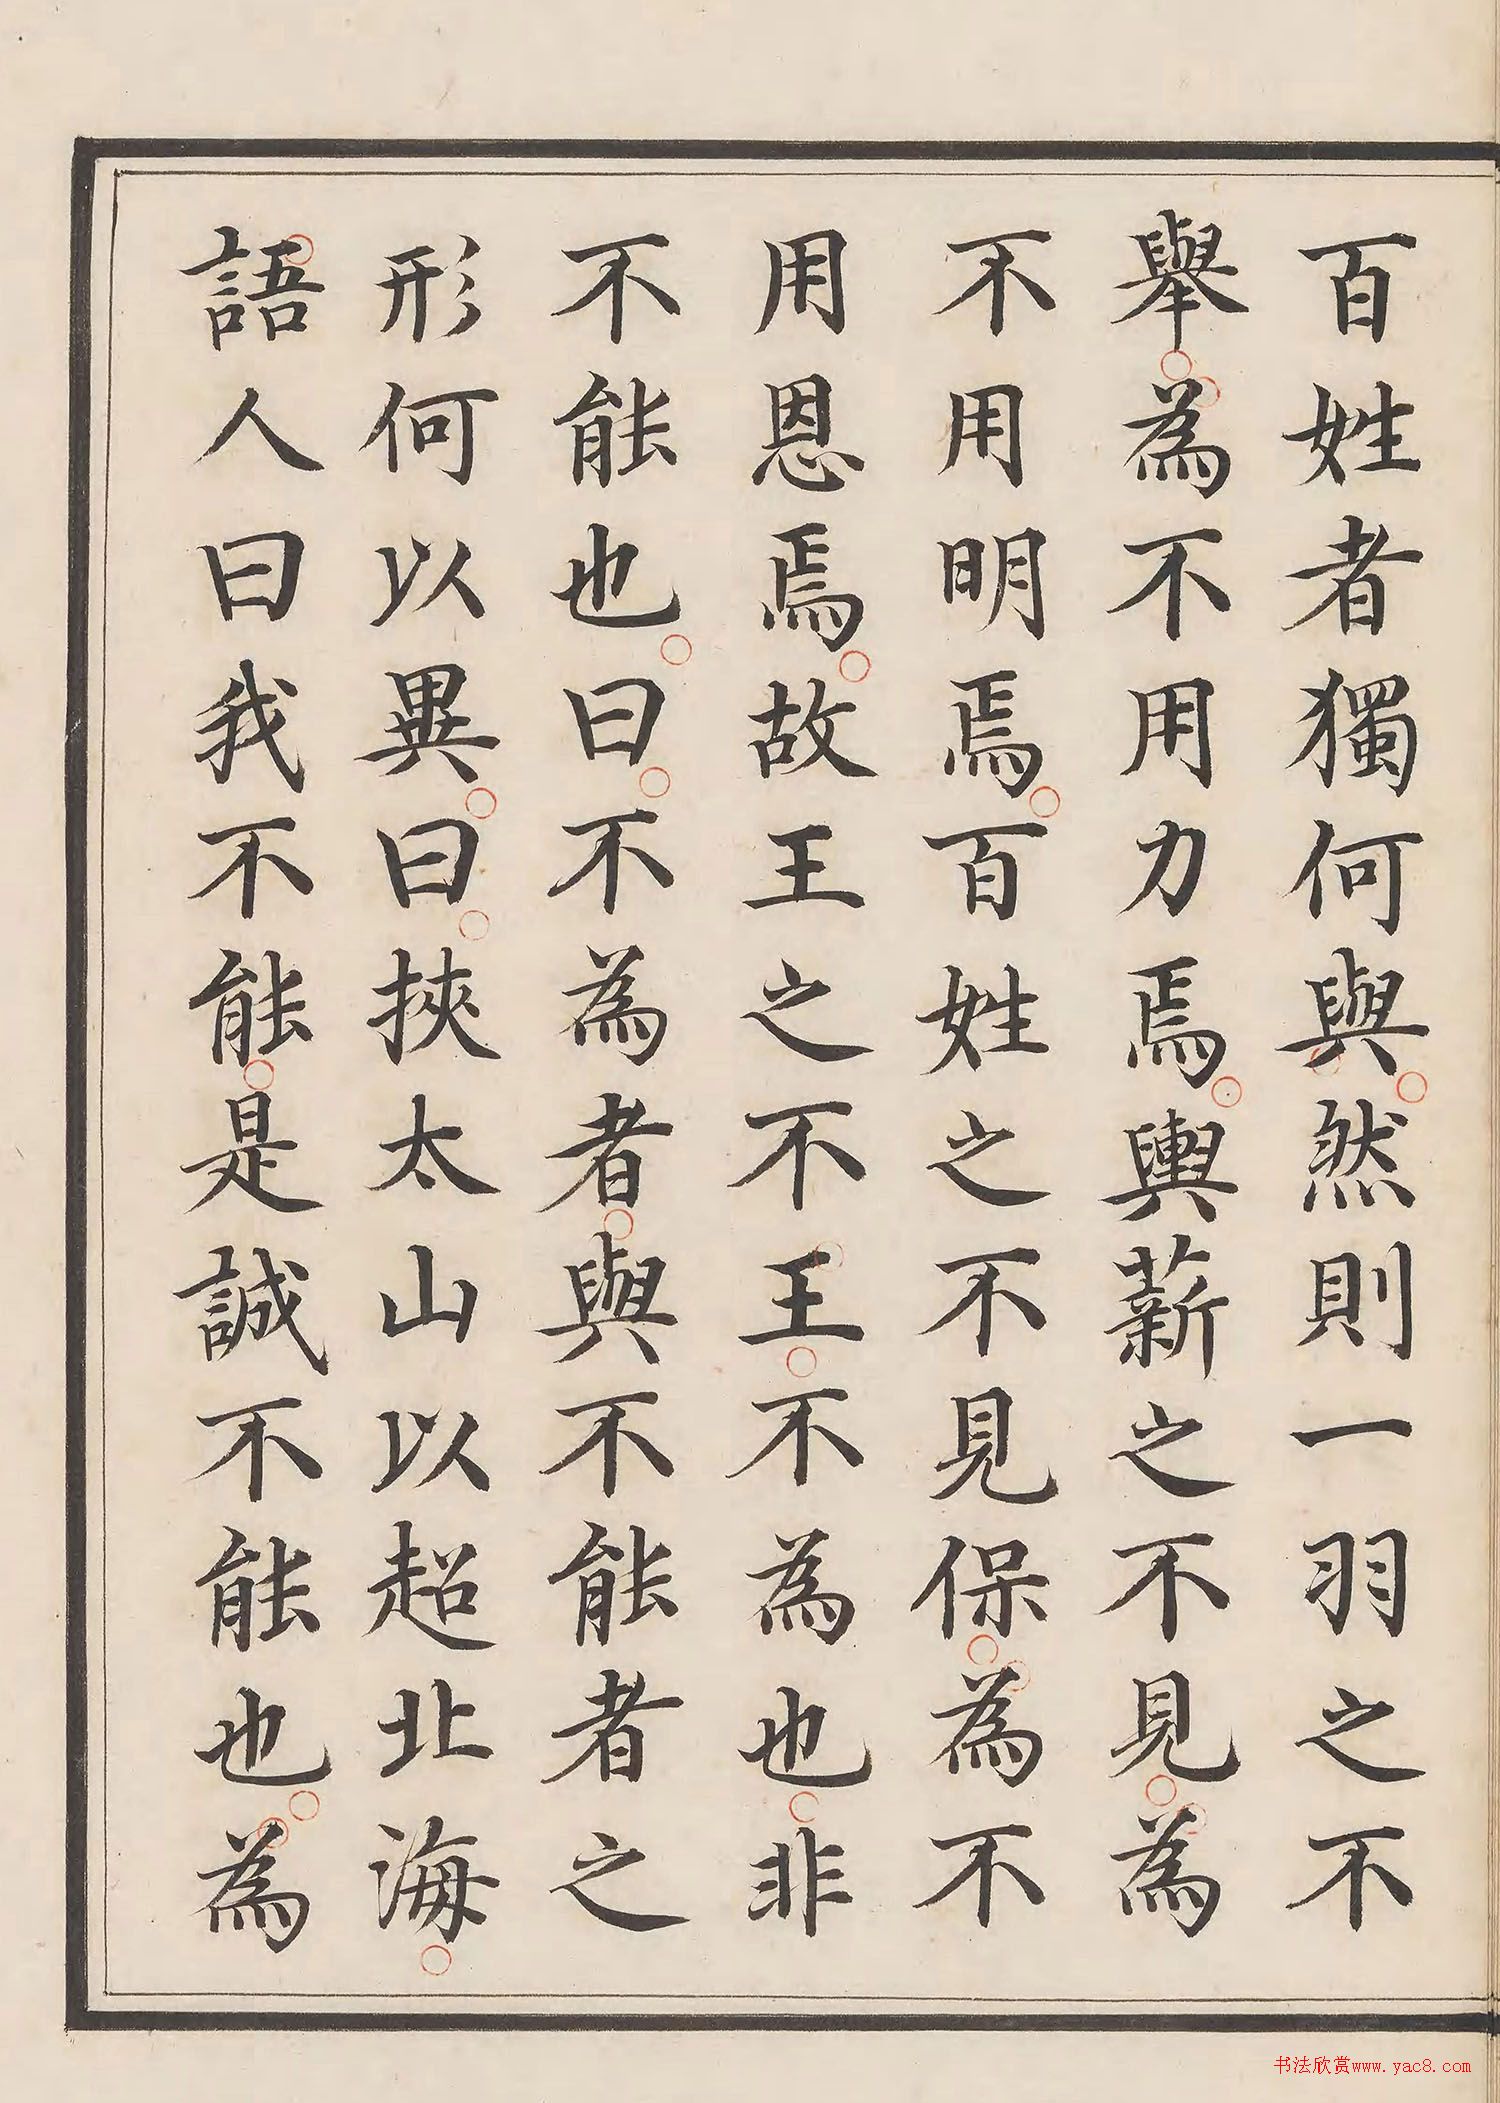 百姓者獨何與然則一羽之不
舉為不用力焉輿薪之不見為
不用明焉百姓之不見保為不
用恩焉故王之不王不為也非
不能也曰不為者與不能者之
形何以異曰挾太山以超北海
語人曰我不能是誠不能也為
书法欣赏www.yac8.com